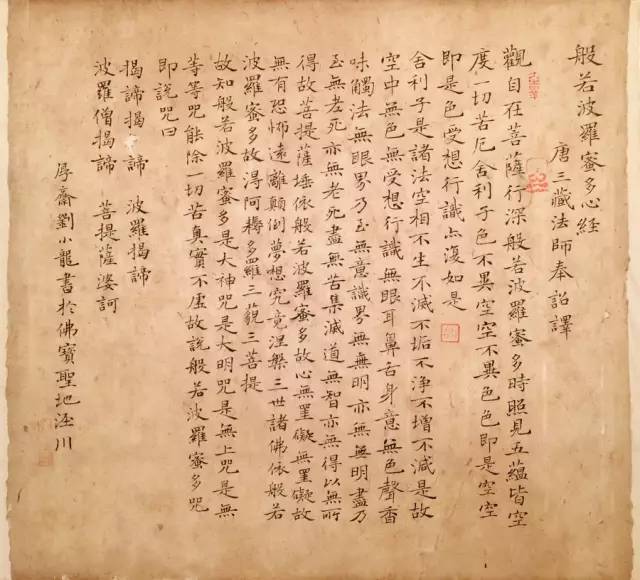 般若波羅蜜多心経
唐三藏法師奉詔譯
觀自在菩薩行深般若波羅蜜多時照見五蘊皆空
度一切苦厄舍利子色不異空空不異色色即是空空
即是色受想行識亦復如是
舍利子是諸法空相不生不滅不垢不浄不增不減是故
空中無色無受想行識無眼耳鼻舌身意無色聲香
味觸法無眼界乃至無意識界無無明亦無無明盡乃
至無老死亦無老死盡無苦集滅道無智亦無得以無所
得故菩提薩埵依般若波羅蜜多故心無罣礙無罣礙故
無有恐怖遠離顛倒夢想究竟涅槃三世諸佛依般若
波羅蜜多故淂阿耨多羅三藐三菩提
故知般若波羅蜜多是大神咒是大明咒是無上咒是無
等等咒能除一切苦真實不虛故說般若波羅蜜多咒
即說咒曰
揭諦揭諦 波羅揭諦
波羅僧揭諦 菩提薩婆訶
厚齋劉小龍書於佛寶聖地涇川